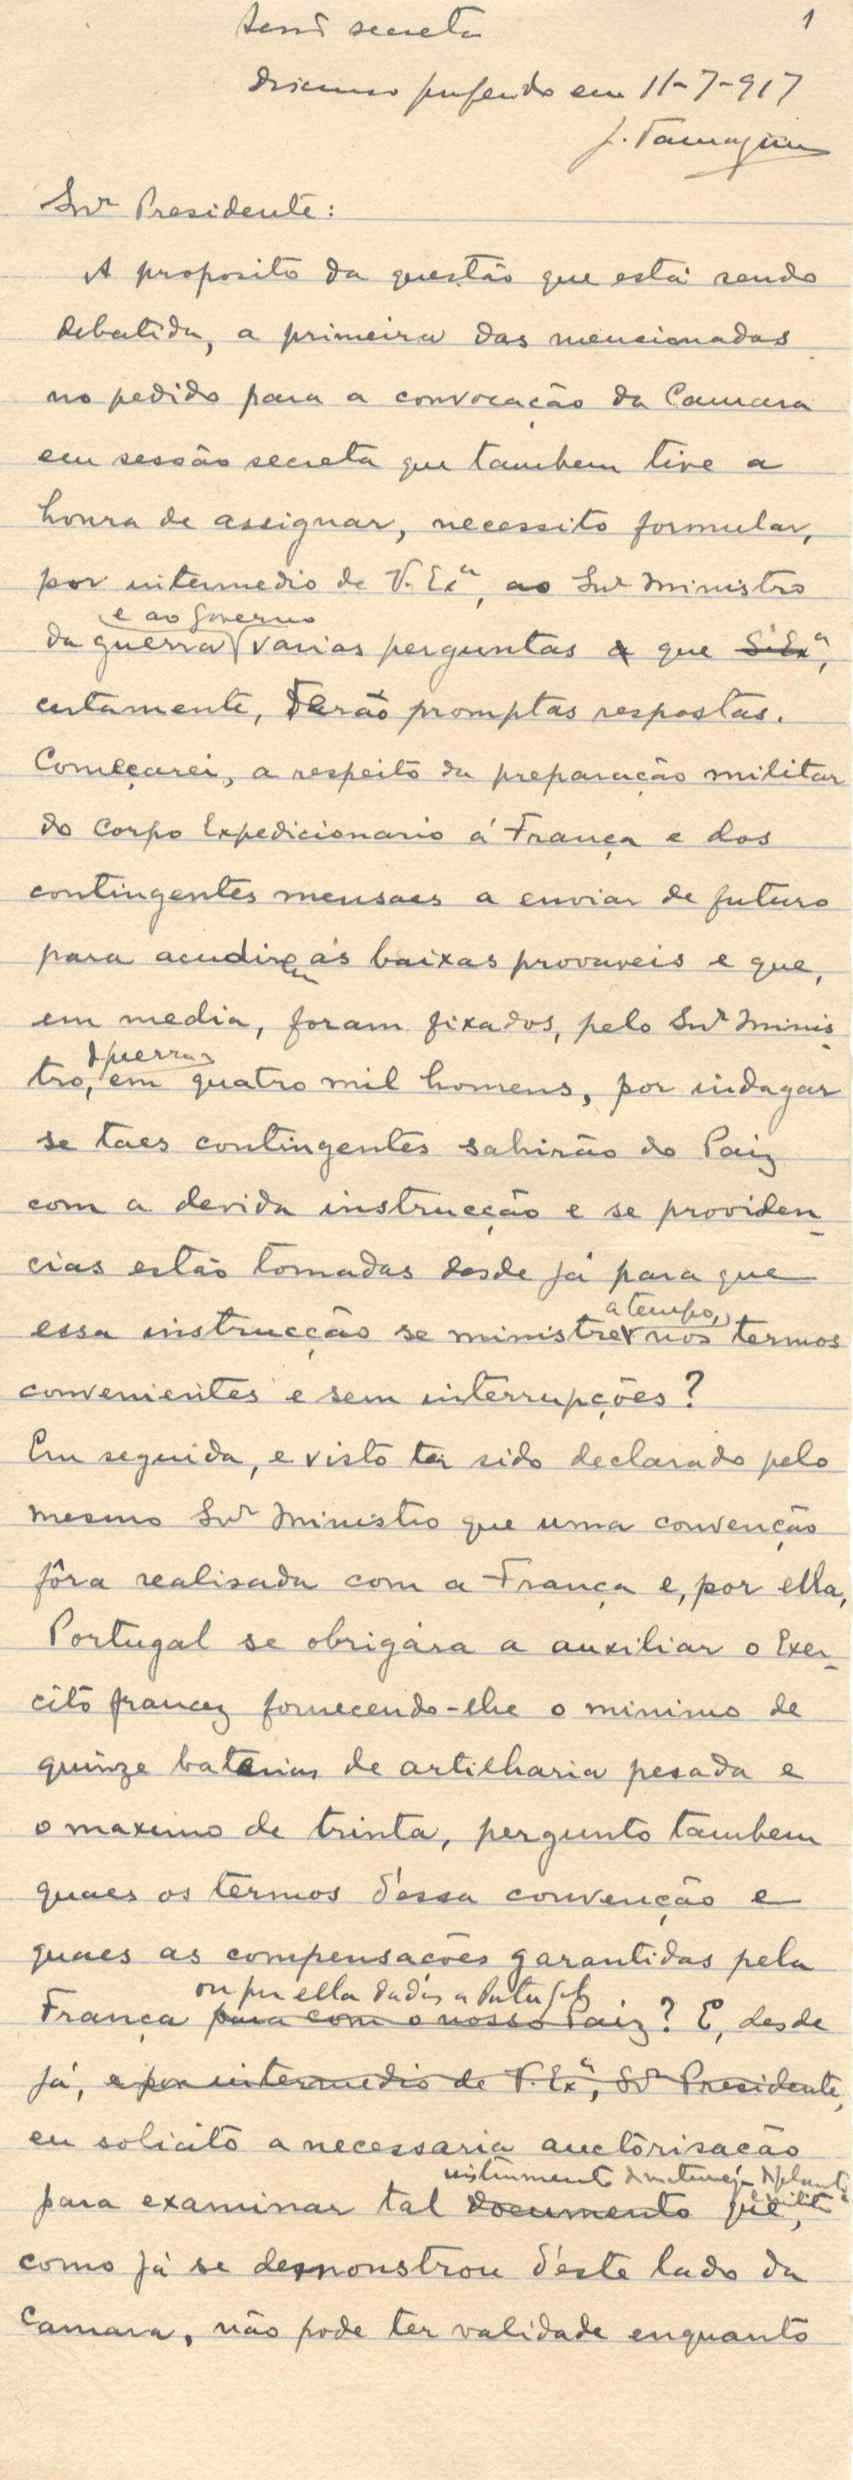 Sessão secreta
1
discurso proferido em 11-7-917
J. Tamagnini
Snr Presidente:
A proposito da questão que está sendo
debatida, a primeira das mencionadas
no pedido para a convocação da Camara
em sessão secreta que tambem tive a
honra de assignar, necessito formular,
por intermedio de V. Exa, ao Snr Ministro
e ao Governo
da guerra varias perguntas a que S. Exa,
certamente, darão promptas respostas.
Começarei, a respeito da preparação militar
do Corpo Expedicionario á França e dos
contingentes mensaes a enviar de futuro
para acudirem ás baixas provaveis e que,
em media, foram fixados, pelo Snr Minis-
da guerra
tro, em quatro mil homens, por indagar
se taes contingentes sahirão do Paiz
com a devida instrucção e se providen-
cias estão tomadas desde já para que
a tempo,
essa instrucção se ministre nos termos
convenientes e sem interrupções?
Em seguida, e visto ter sido declarado pelo
mesmo Snr Ministro que uma convenção
fôra realisada com a França e, por ella,
Portugal se obrigára a auxiliar o Exer-
cito francez fornecendo-lhe o minimo de
quinze baterias de artilharia pesada e
o maximo de trinta, pergunto tambem
quaes os termos d'essa convenção e
quaes as compensações garantidas pela
ou por ella dadas a Portugal
França para com o nosso Paiz? E, desde
já, e por intermedio de V. Exa, Snr Presidente,
eu solicito a necessaria auctorisação
instrumento de natureza
para examinar tal documento que,
como já se demonstrou d'este lado da
Camara, não pode ter validade enquanto